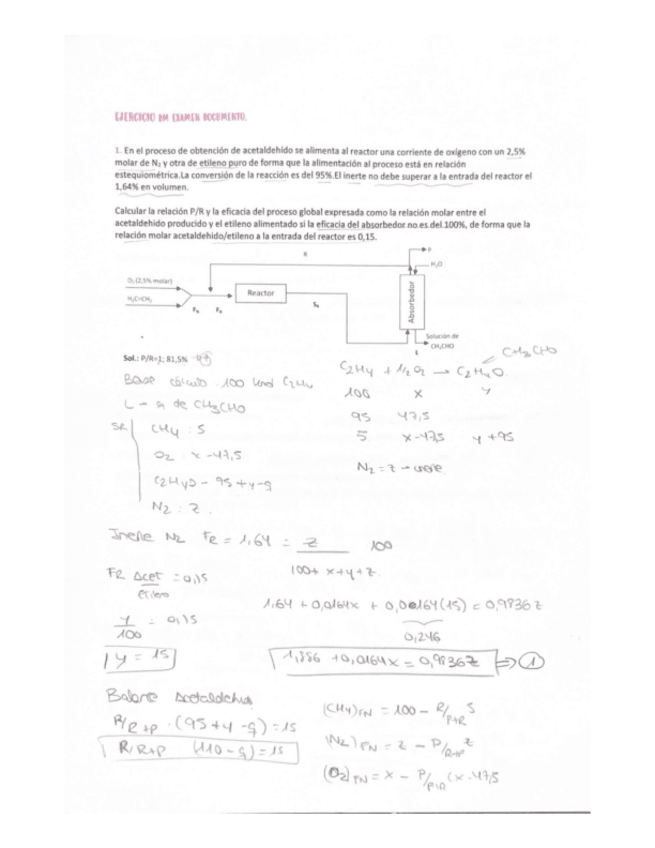 EJERCICIO DM EXAMEN DOCUMENTO.
1. En el proceso de obtención de acetaldehido se alimenta al reactor una corriente de oxígeno con un 2,5%
molar de N₂ y otra de etileno puro de forma que la alimentación al proceso está en relación
estequiométrica.La conversión de la reacción es del 95%.El inerte no debe superar a la entrada del reactor el
1,64% en volumen.
Calcular la relación P/R y la eficacia del proceso global expresada como la relación molar entre el
acetaldehido producido y el etileno alimentado si la eficacia del absorbedor no es del 100%, de forma que la
relación molar acetaldehido/etileno a la entrada del reactor es 0,15.
R
P
H₂O
O₂ (2,5% molar)
H₂C=CH₂
Reactor
Absorbedor
Solución de
CH₃CHO
L
Sol.: P/R=1; 81,5%
CH₃CHO
C₂H₄ + 1/2 O₂ → C₂H₄O
Base cálculo 100 kmol C₂H₄
100 x y
L → q de CH₃CHO
95 47,5
SR CH₄ : 5
5 x-47,5 y+95
O₂ : x-47,5
N₂ = z → inerte
C₂H₄O → 95+y-q
N₂ : z.
Inerte N₂ FR = 1,64 = z 100
100+x+y+z
FR Acet = 0,15
etileno
1,64 + 0,0164x + 0,00164(15) = 0,9836z
y/100 = 0,15
0,246
y = 15
1,886 + 0,0164x = 0,9836z ⇒ ①
Balance Acetaldehido
R/R+P · (95+y-q) = 15
R/R+P (110-q) = 15
(CH₄)FN = 100 - R/P+R 5
(N₂)FN = z - P/R+P z
(O₂)FN = x - P/P+R (x-47,5